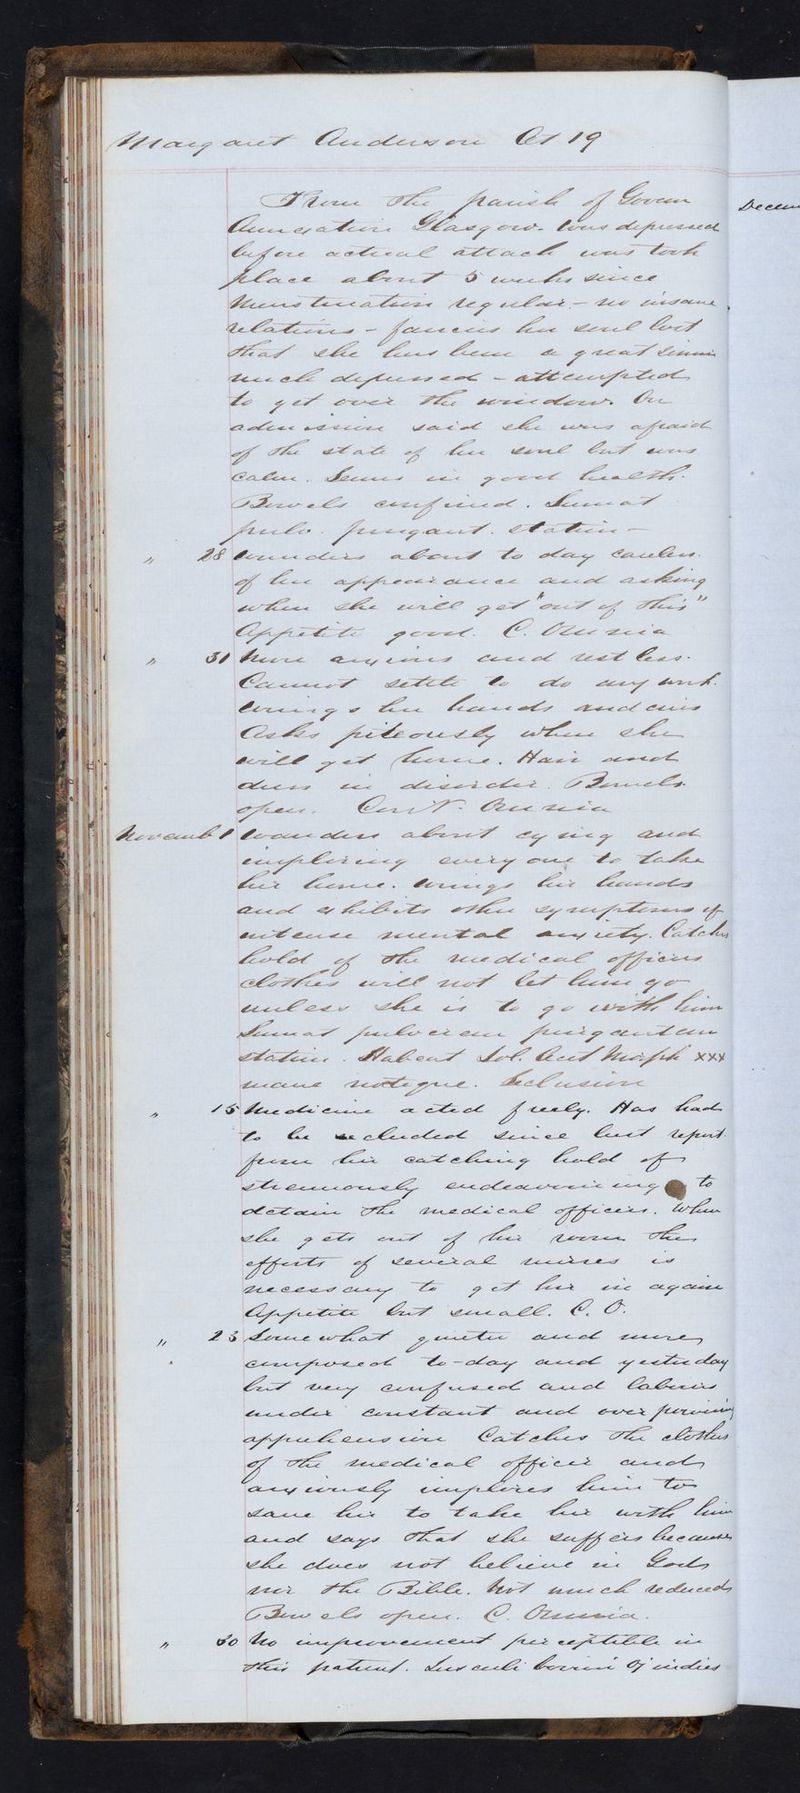 Margaret Anderson Æt 19
From the parish of Govan
Glasgow. Was depressed
before actual attack was took
place about 5 weeks since
Menstruation regular - no insane
relations - fancies her soul lost
that she has been a great sinner
much depressed - attempted
to get over the window. On
admission said she was afraid
of the state of her soul but was
calm. Seems in good health.
Bowels confined. Sumat
pulv. purgant. statim -
" 28 Wanders about to day careless
of her appearance and asking
when she will get "out of this"
Appetite good. C. Omnia
" 31 More anxious and restless.
Cannot settle to do any work.
wrings her hands and cries
Asks piteously when she
will get home. Hair and
dress in disorder. Bowels
open. Cont. Omnia
Novemb 1 Wanders about crying and
imploring every one to take
her home. Wrings her hands
and exhibits other symptoms of
intense mental anxiety. Catches
hold of the medical officers
clothes will not let him go
unless she is to go with him
Sumat pulverem purgantem
statim. Habeat Sol. Acet Morph xxx
mane nocteque. Seclusion
" 15 Medicine acted freely. Has had
to be secluded since last report
from her catching hold of
strenuously endeavouring to
detain the medical officers. When
she gets out of her room the
efforts of several nurses is
necessary to get her in again
Appetite but small. C. O.
" 23 Somewhat quieter and more
composed to-day and yesterday
but very confused and labours
under constant and overpowering
apprehension Catches the clothes
of the medical officer and
anxiously implores him to
save her to take her with him
and says that she suffers because
she does not believe in God
nor the Bible. Not much reduced
Bowels open. C. Omnia.
" 30 No improvement perceptible in
this patient. Jusculi bovini in dies
Decem